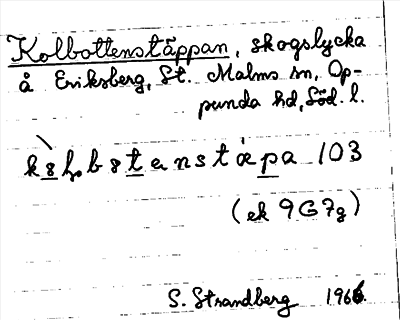 Kolbottenstäppan, skogslycka
å Eriksberg, St. Malms sn, Op-
punda hd, Söd. l.
103
(ek 9G7g)
S. Strandberg 1966.